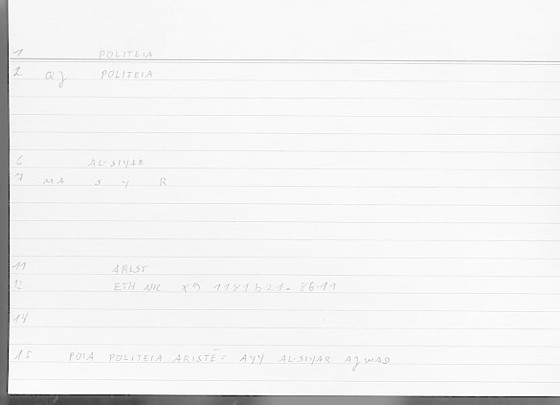 1 POLITEIA
2 QJ POLITEIA
6 AL-SIYAR
7 MA S Y R
11 ARIST
12 ETH NIC X9 1181b21-
14
15 POIA POLITEIA ARISTĒ = AYY AL-SIYAR AJWAD